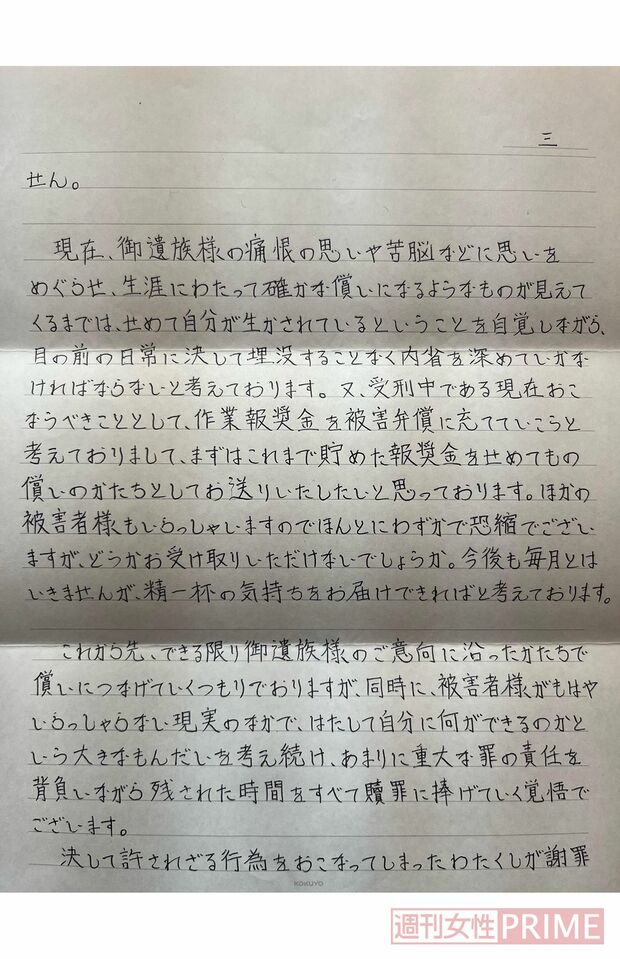 三
せん。
現在、御遺族様の痛恨の思いや苦脳などに思いを
めぐらせ、生涯にわたって確かな償いになるようなものが見えて
くるまでは、せめて自分が生かされているということを自覚しながら、
目の前の日常に決して埋没することなく内省を深めていかな
ければならないと考えております。又、受刑中である現在おこ
なうべきこととして、作業報奨金を被害弁償に充てていこうと
考えておりまして、まずはこれまで貯めた報奨金をせめてもの
償いのかたちとしてお送りいたしたいと思っております。ほかの
被害者様もいらっしゃいますのでほんとにわずかで恐縮でござい
ますが、どうかお受け取りいただけないでしょうか。今後も毎月とは
いきませんが、精一杯の気持ちをお届けできればと考えております。
これから先、できる限り御遺族様のご意向に沿ったかたちで
償いにつなげていくつもりでおりますが、同時に、被害者様がもはや
いらっしゃらない現実のなかで、はたして自分に何ができるのかと
いう大きなもんだいを考え続け、あまりに重大な罪の責任を
背負いながら残された時間をすべて贖罪に捧げていく覚悟で
ございます。
決して許されざる行為をおこなってしまったわたくしが謝罪
KOKUYO
週刊女性PRIME